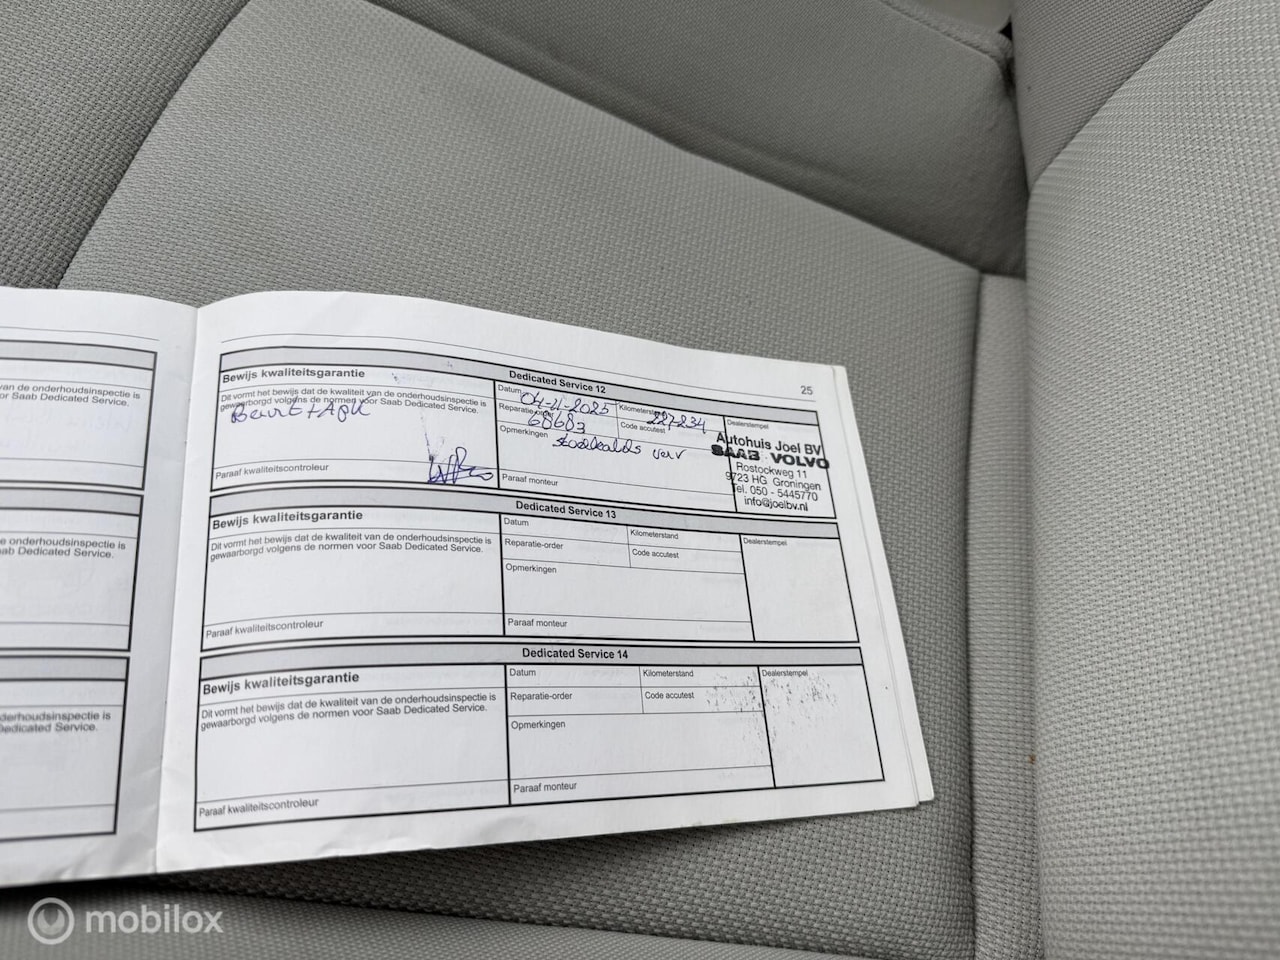 van de onderhoudsinspectie is
or Saab Dedicated Service.
e onderhoudsinspectie is
aab Dedicated Service.
derhoudsinspectie is
Dedicated Service.
25
Dedicated Service 12
Bewijs kwaliteitsgarantie
Dit vormt het bewijs dat de kwaliteit van de onderhoudsinspectie is
gewaarborgd volgens de normen voor Saab Dedicated Service.
Beurt + Apk
Paraaf kwaliteitscontroleur
Datum 04-11-2025
Kilometerstand 227-234
Reparatie-order 68683
Code accutest
Opmerkingen
verv
Paraaf monteur
Dealerstempel
Autohuis Joel BV
SAAB VOLVO
Rostockweg 11
9723 HG Groningen
Tel. 050 - 5445770
info@joelbv.nl
Dedicated Service 13
Bewijs kwaliteitsgarantie
Dit vormt het bewijs dat de kwaliteit van de onderhoudsinspectie is
gewaarborgd volgens de normen voor Saab Dedicated Service.
Paraaf kwaliteitscontroleur
Datum
Kilometerstand
Reparatie-order
Code accutest
Opmerkingen
Paraaf monteur
Dealerstempel
Dedicated Service 14
Bewijs kwaliteitsgarantie
Dit vormt het bewijs dat de kwaliteit van de onderhoudsinspectie is
gewaarborgd volgens de normen voor Saab Dedicated Service.
Paraaf kwaliteitscontroleur
Datum
Kilometerstand
Reparatie-order
Code accutest
Opmerkingen
Paraaf monteur
Dealerstempel
mobilox